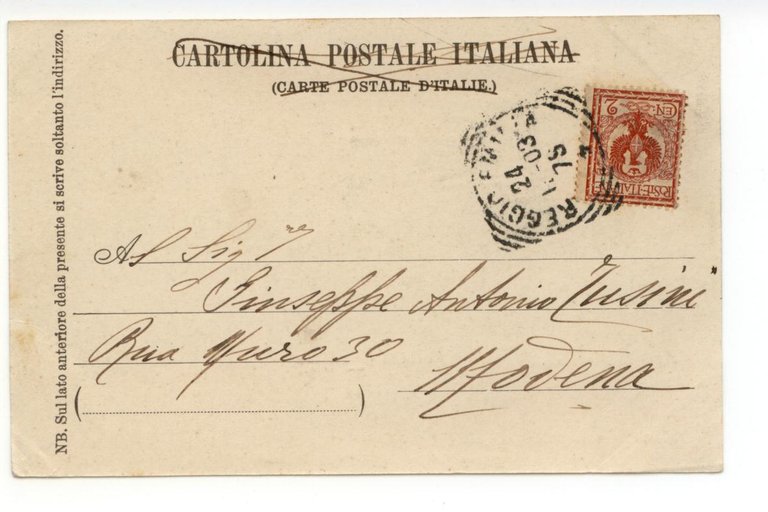 CARTOLINA POSTALE ITALIANA
(CARTE POSTALE D'ITALIE.)
NB. Sul lato anteriore della presente si scrive soltanto l'indirizzo.
2
EN.
POSTE ITALIANE
REGGIO EMILIA
24
03
7S
Al Sigr
Giuseppe Antonio Tusini
Rua Muro 30
Modena